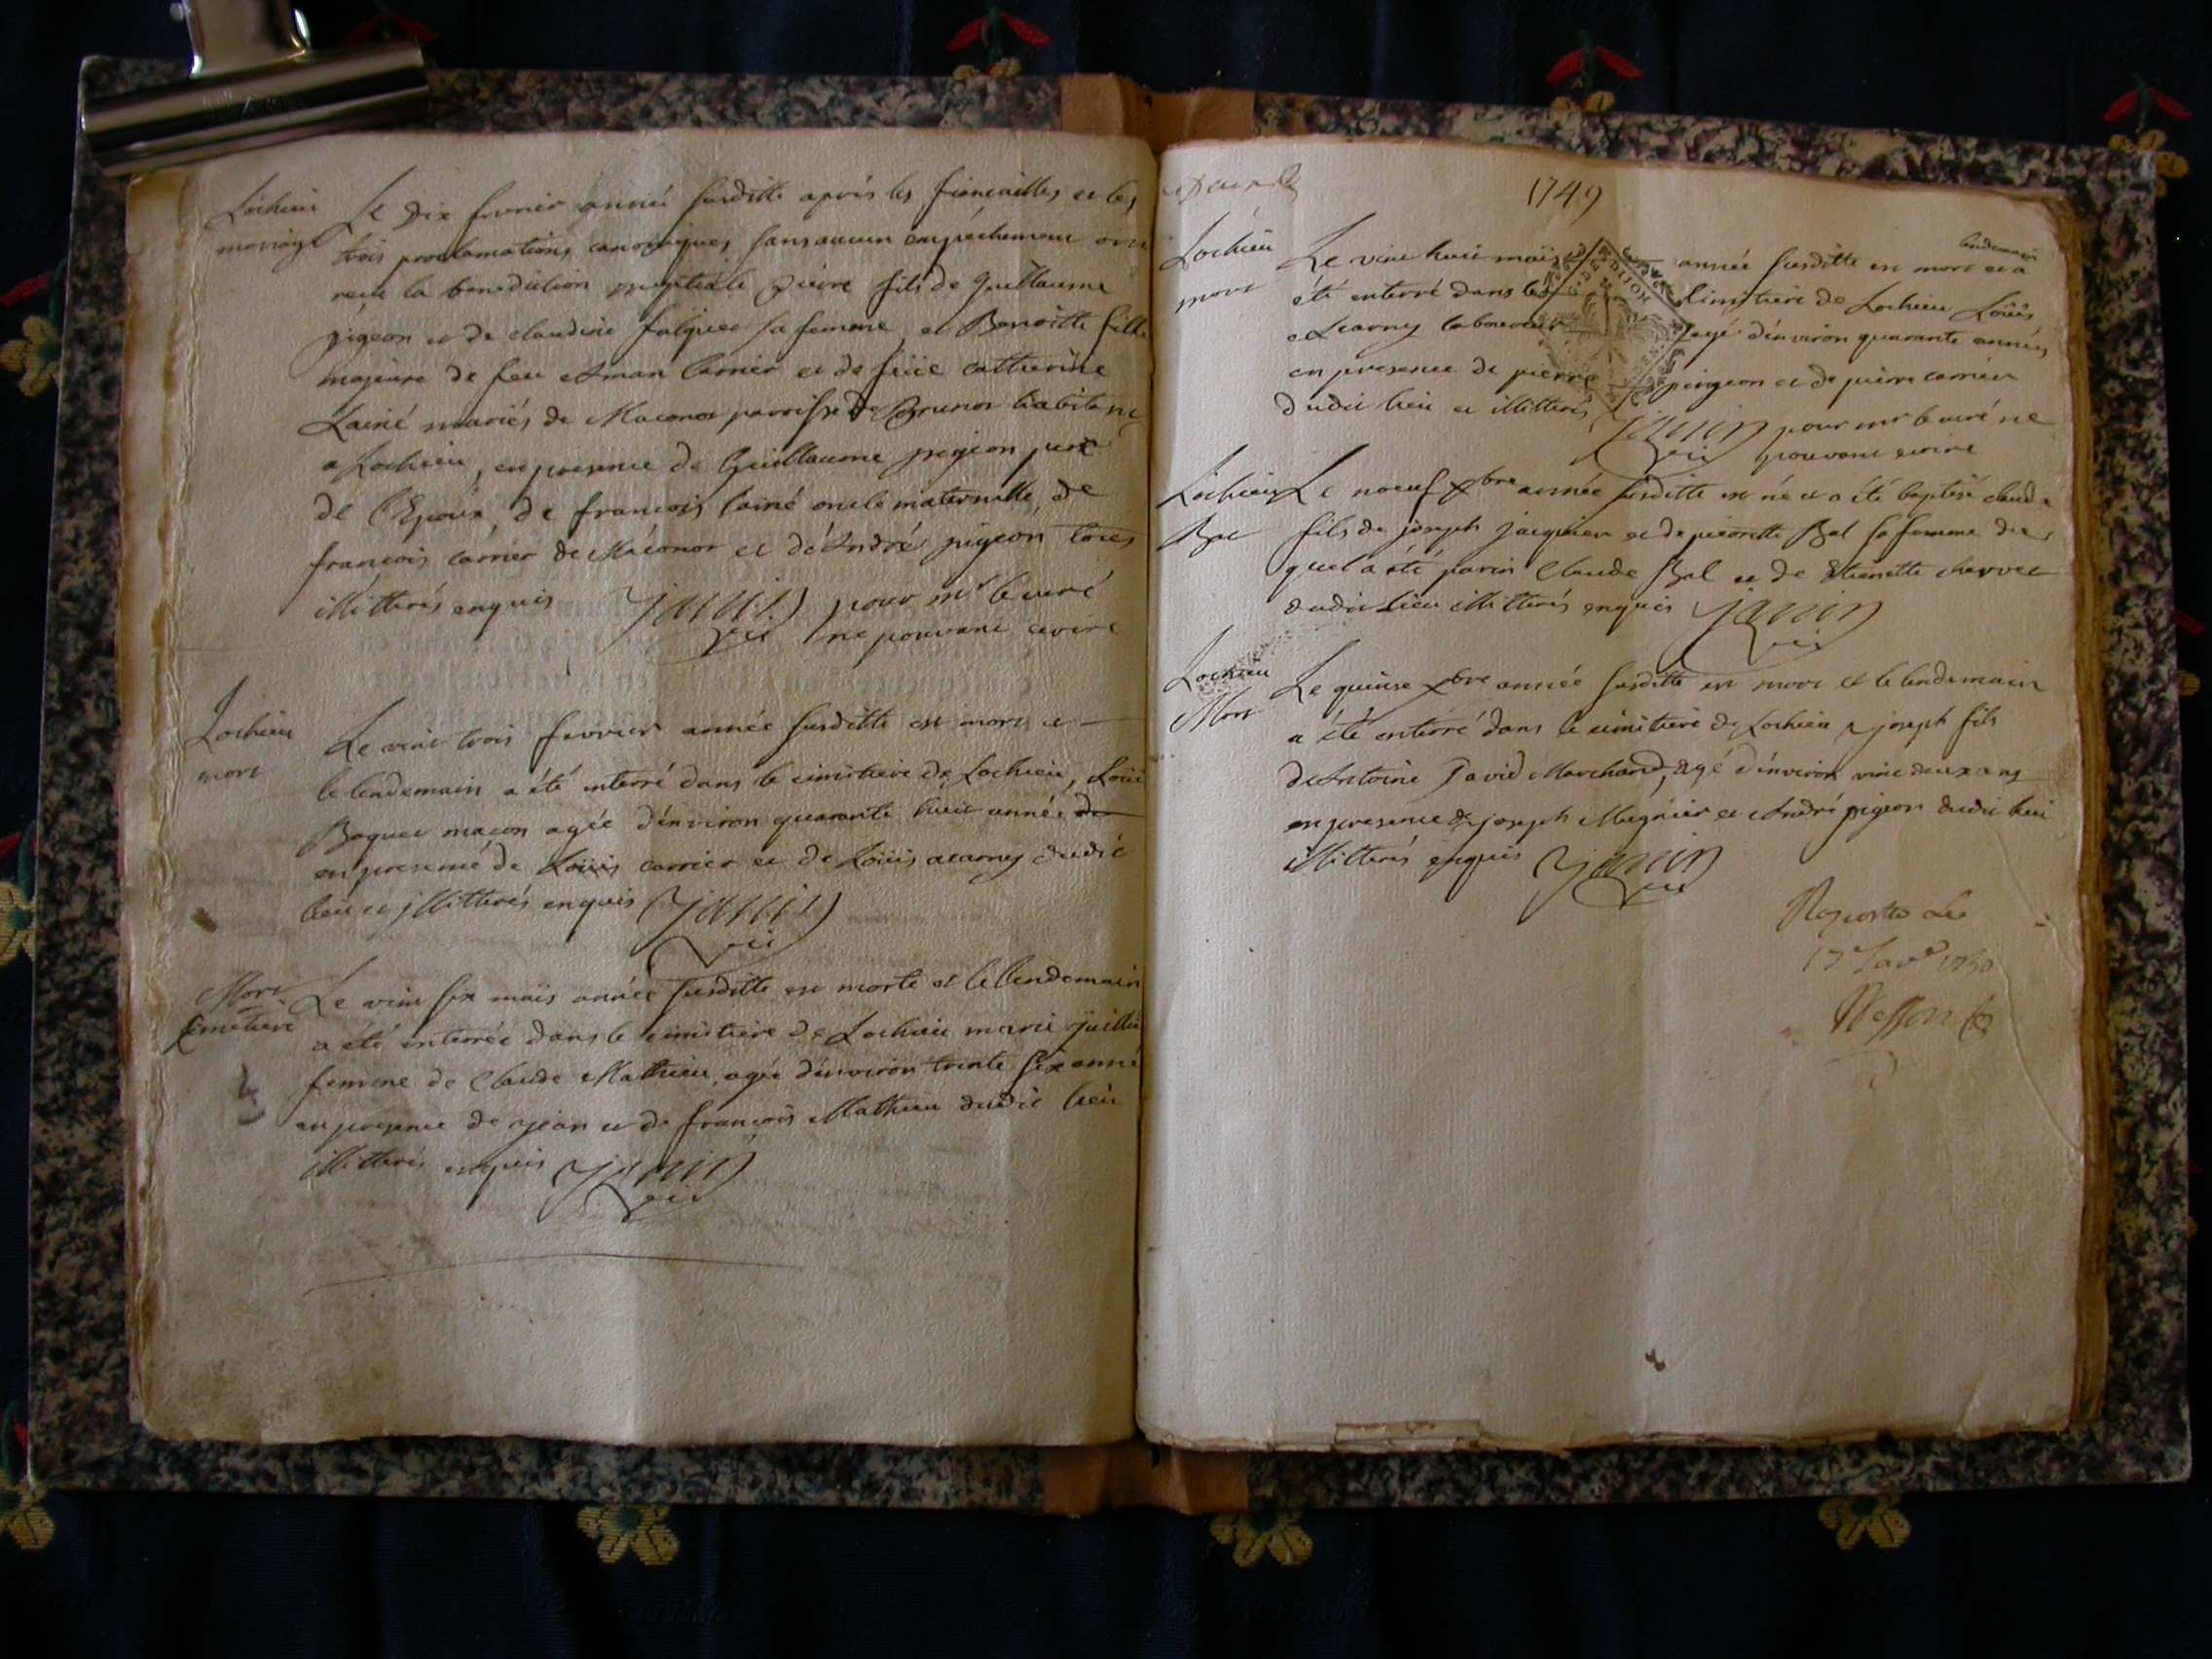 Lochieu
mariage
Le dix fevrier année susditte aprés les fiancailles et les
trois proclamations canoniques sans aucun empéchement ont
reçu la benediction nuptiale pierre fils de Guillaume
pigeon et de claudine falquet sa femme et Benoitte fille
majeure de feu Aman carrier et de feüe catherine
Lainé mariés de Maconod parroisse de Brenod habitant
a Lochieu, en presence de Guillaume pigeon pere
de l'Epoux, de francois lainé oncle maternelle, de
francois carrier de Maconod et d'André pigeon tous
illitterés enquis Janin pour mr le curé
vic ne pouvant ecrire
Lochieu
mort
Le vint trois fevrier année susditte est mort et
le lendemain a été enterré dans le cimitiere de Lochieu, Loüis
Boquet macon agée d'environ quarante huit année
en presence de Loüis carrier et de Loüis acarny dudit
lieu et jllitterés enquis Janin
vic
Mort
Cimetiere
Le vint six mais année susditte est morte et le lendemain
a été enterrée dans le cimitiere de Lochieu marie
femme de Claude Mathieu, agée d'environ trente six année
en presence de Jean et de francois Mathieu dudit lieu
illitterés enquis Janin
vic
1749
Lochieu
mort
Le vint huit mais année susditte est mort et a lendemain
été enterré dans le cimitiere de Lochieu Loüis
Acarny laboureur agé d'environ quarante années
en presence de pierre pingeon et de pierre carrier
dudit lieu et illitterés
Janin pour mr le curé ne
vic pouvant ecrire
Lochieu
Bat
Le noeuf xbre année susditte est né et a été baptisé claude
fils de joseph jacquier et de pierrette Bal sa femme du
quel a été parin Claude Bal et de Etienette charvet
dudit Lieu illitterés enquis Janin
vic
Lochieu
Mort
Le quinse xbre année susditte est mort et le lendemain
a été enterré dans le cimitiere de Lochieu joseph fils
d'Antoine David Marchand, agé d'environ vint deux ans
en presence de joseph Mugnier et André pigeon dudit lieu
illitterés enquis Janin
vic